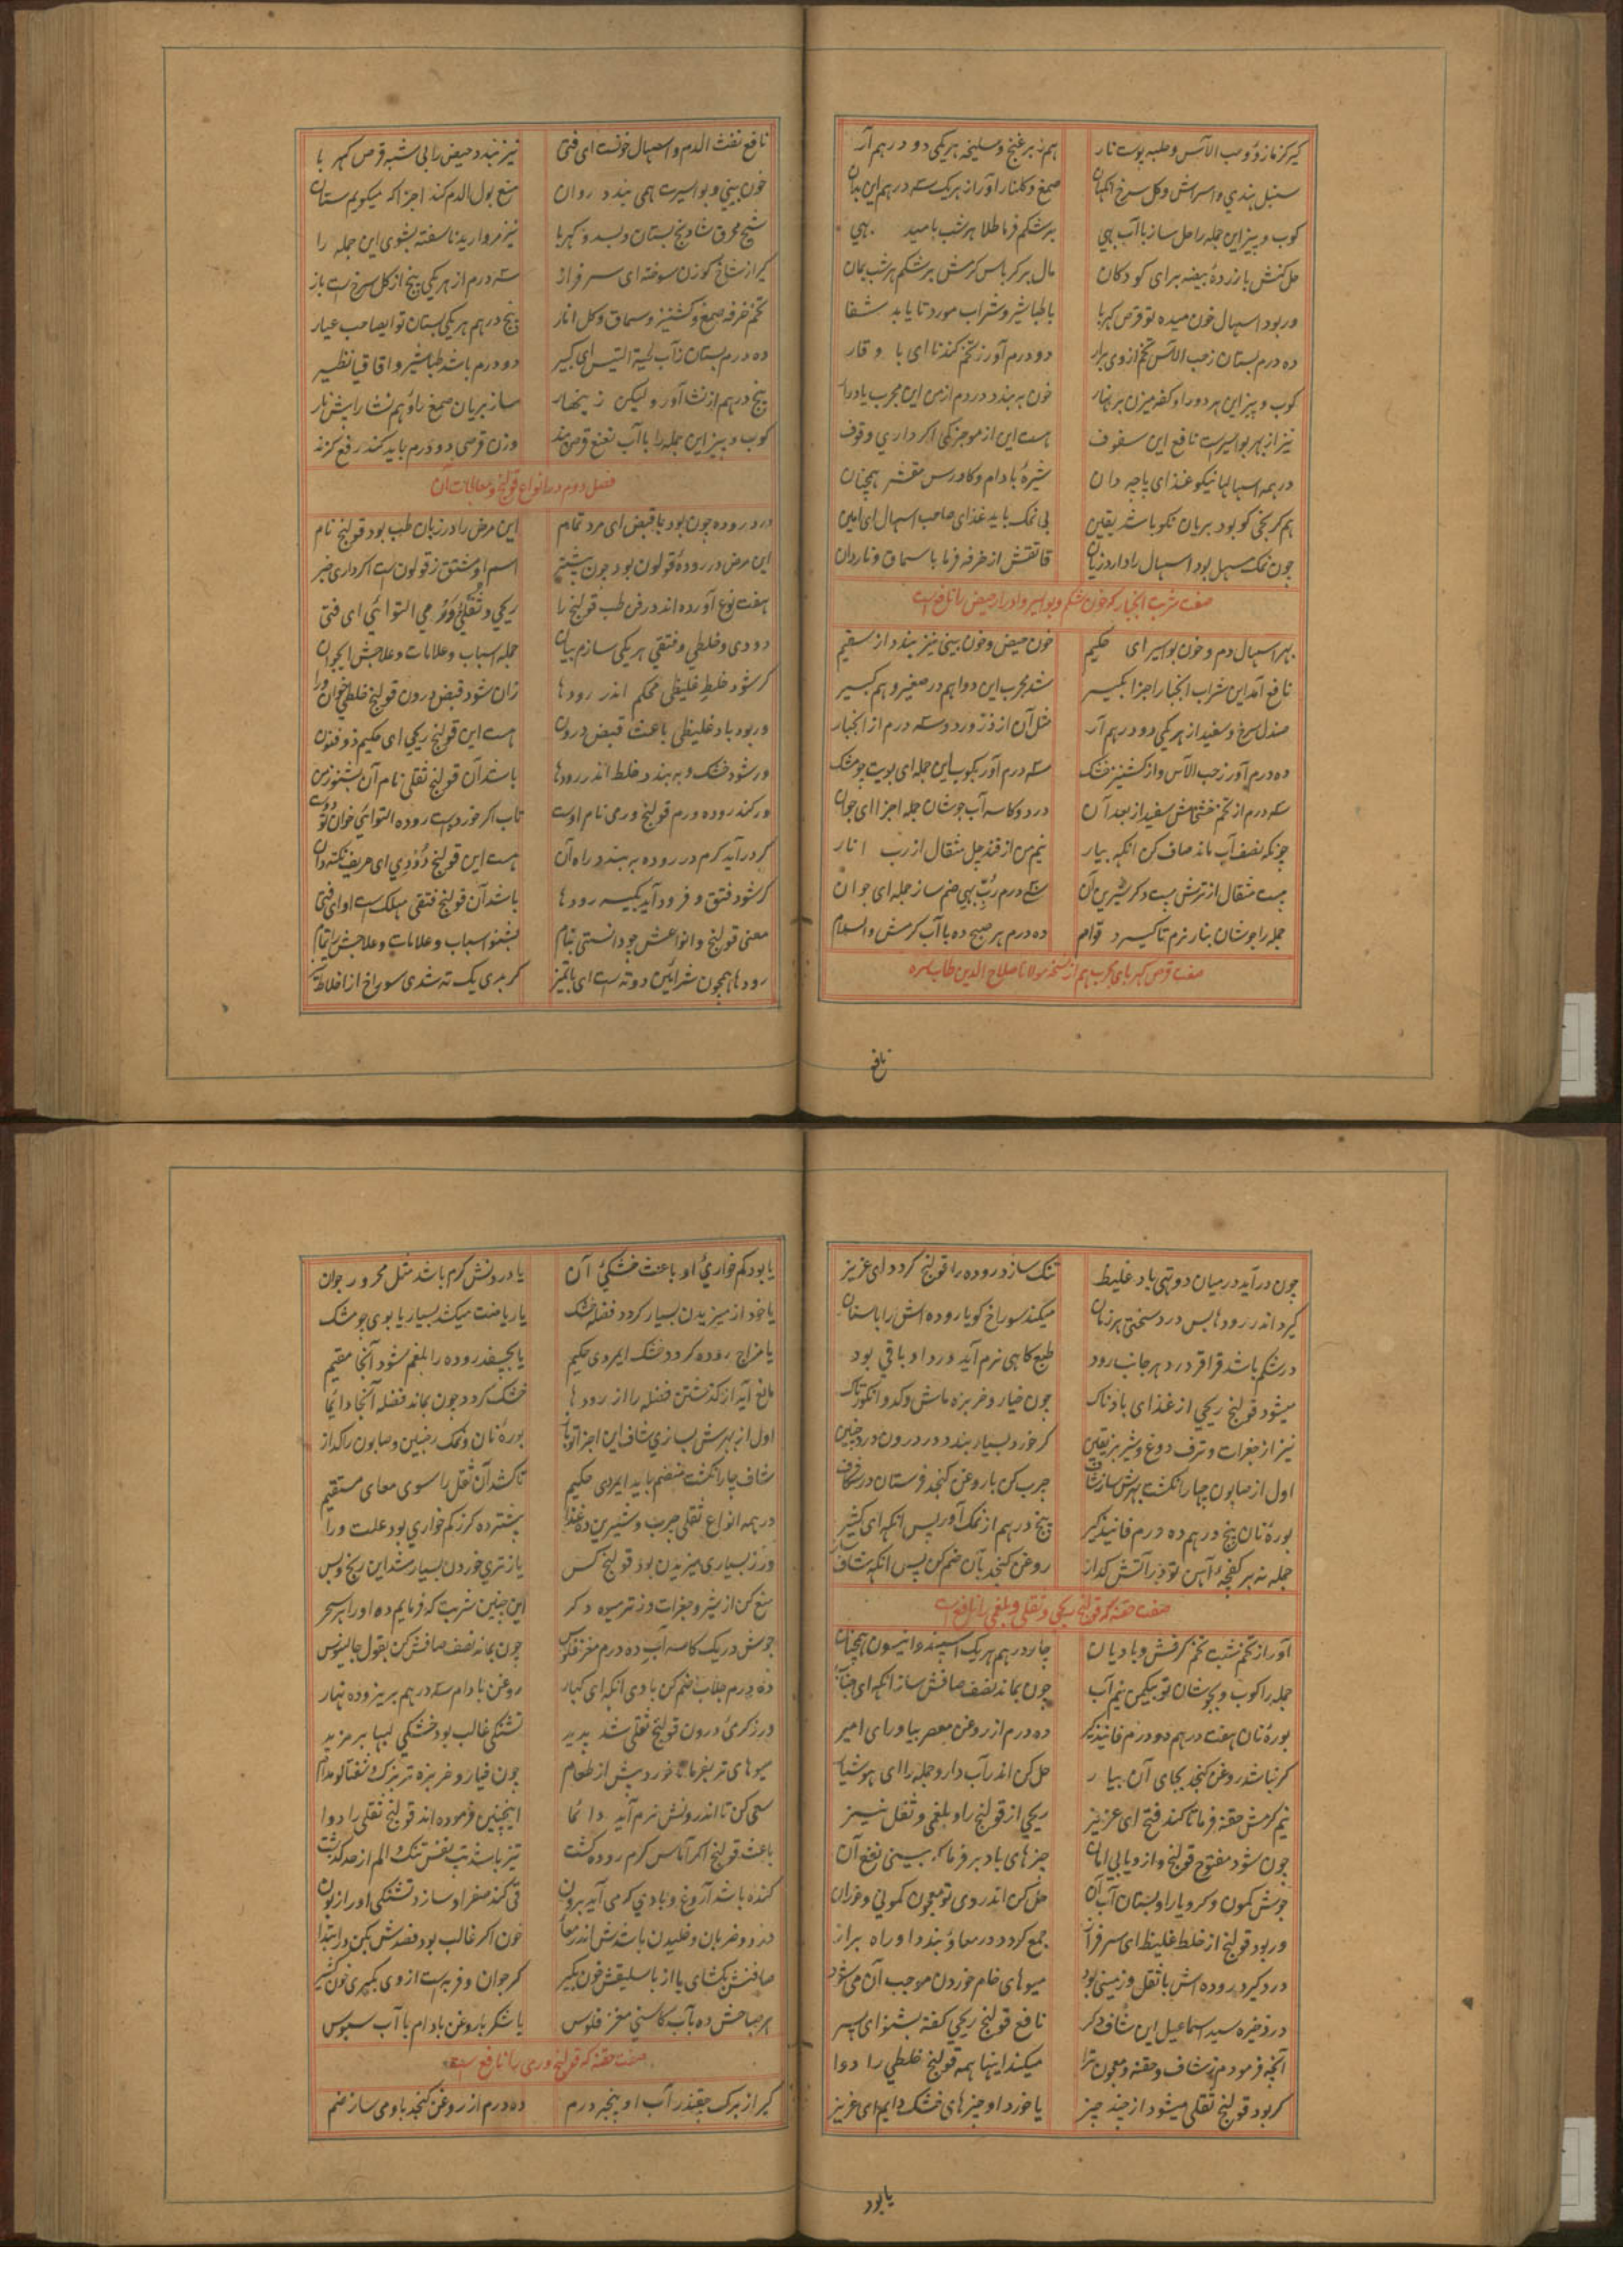 گیر گز مازو و حب الآس و حلبه پوست نار هم ز برغنج و سلیخه هر یکی دو درهم آر
سنبل هندی و اسراش و گل سرخ آنگهان صمغ و گلنار آور از هریک سه درهم این بدان
کوب و بیز این جمله را حل ساز با آب بهی بر شکم فرما طلا هر شب بامید بهی
حل کنش با زردهٔ بیضه برای کودکان مال بر کرباس گرمش بر شکم هر شب بمان
ور بود اسهال خون میده تو قرص کهربا با طباشیر و شراب مورد تا یابد شفا
ده درم بستان ز حب الآس تخم از وی برار دو درم آور ز تخم گندنا ای با وقار
کوب و بیز این هر دو را و کفه میزن بر نهار خون به بندد در دم از من این مجرب یاد دار
نیز از بهر بواسیرست نافع این سفوف هست این از موجزکی اگر داری وقوف
در همه اسهالها نیکو غذای پاچه دان شیرهٔ بادام و کاورس مقشر همچنان
هم کرنجی کو بود بریان نکو باشد یقین بی نمک باید غذای صاحب اسهال ای امین
چون نمک مسهل بود اسهال را دارد زیان قاتقش از طرفه فرما با سماق و ناردان
صفت شربت انجبار که خون شکم و بواسیر و ادرار حیض را نافع است
بهر اسهال دم و خون بواسیر ای حکیم خون حیض و خون بینی نیز بندد از سقیم
نافع آمد این شراب انجبار اجزا بگیر شد مجرب این دوا هم در صغیر و هم کبیر
صندل سرخ و سفید از هر یکی دو درهم آر مثل آن از وزر ورد و سه درم از انجبار
ده درم آور ز حب الآس و از کشنیز خشک سه درم آور بکوب این جمله ای بویت چو مشک
سه درم از تخم خشخاش سفید از بعد آن در دو کاسه آب جوشان جمله اجزا ای جوان
چونکه نصف آب ماند صاف کن آنگه بیار نیم من از قند چل مثقال از رب انار
بیست مثقال از ترش بیست دگر شیرین آن سی درم رب بهی ضم ساز جمله ای جوان
جمله را جوشان بنار نرم تا گیرد قوام ده درم هر صبح ده با آب گرمش والسلام
صفت قرص کهربای مجرب هم از نسخه مولانا صلاح الدین طاب سره
نافع
نافع نفث الدم و اسهال خونست ای فتی نیز بندد حیض را بی شبه قرص کهربا
خون بینی و بواسیرت همی بندد روان منع بول الدم کند اجزا که میگویم ستان
شیح محرق شادنج بستان و بسد و کهربا نیز مروارید ناسفته بشوی این جمله را
گیر از شاخ گوزن سوخته ای سرفراز سه درم از هر یکی پنج از گل سرخست باز
تخم خرفه صمغ و کشنیز و سماق و گل انار پنج درهم هر یکی بستان تو ایصاحب عیار
ده درم بستان ز آب لحیة التیس ای کبیر دو درم باشد طباشیر و اقاقیا نظیر
پنج درهم از نشا آور ولیکن زینهار ساز بریان صمغ را و هم نشا را پیش نار
کوب و بیز این جمله را با آب نعنع قرص بند وزن قرصی دو درم باید کند رفع گزند
فصل دوم در انواع قولنج و معالجات آن
درد روده چون بود با قبض ای مرد تمام این مرض را در زبان طب بود قولنج نام
این مرض در رودهٔ قولون بود چون بیشتر اسم او مشتق ز قولونست اگر داری خبر
هفت نوع آورده‌اند در فن طب قولنج را ریحی و ثقلی و ورمی التوائی ای فتی
دودی و خلطی و فتقی هر یکی سازم بیان جمله اسباب و علامات و علاجش ای جوان
گر شود خلط غلیظی محکم اندر رودها زان شود قبض درون قولنج خلطی خوان ورا
ور بود باد غلیظی باعث قبض درون هست این قولنج ریحی ای حکیم ذوفنون
ور شود خشک و به بندد خلط اندر رودها باشد آن قولنج ثقلی نام آن بشنو ز من
ور کند روده ورم قولنج ورمی نام اوست تاب اگر خوردست روده التوائی خوان تو دوست
گر در آید کرم در روده به بندد راه آن هست این قولنج دودی ای حریف نکته دان
گر شود فتق و فرود آید بکیسه رودها باشد آن قولنج فتقی مهلکست او ای فتی
معنی قولنج و انواعش چو دانستی تمام بشنو اسباب و علامات و علاجش را تمام
رودها همچون شرائین دو ته است ای با تمیز گر بدی یک ته شدی سوراخ از اخلاط تیز
چون در آید در میان دو تهی باد غلیظ تنگ سازد روده را قولنج گردد ای عزیز
گیرد اندر رودها بس درد سختی هر زمان میکند سوراخ گویا روده‌اش را با سنان
در شکم باشد قراقر درد هر جانب رود طبع گاهی نرم آید درد او باقی بود
میشود قولنج ریحی از غذای بادناک چون خیار و خربزه ماش و کدو انگور تاک
نیز از جغرات و ترف دوغ و شیر بز یقین گر خورد بسیار بندد در درون درد چنین
اول از صابون چهار انگشت بهرش ساز شاف چرب کن با روغن کنجد فرستان در شکاف
بورهٔ نان پنج درهم ده درم فانیذ گیر پنج درهم از نمک آور پس آنگه ای کثیر
جمله نه بر کفچهٔ آهن تو در آتش گداز روغن کنجد بآن ضم کن پس آنگه شاف ساز
صفت حقنه که قولنج ریحی و ثقلی و بلغمی را نافع است
آور از تخم شبت تخم کرفش و بادیان چار درهم هریک اسپند و انیسون همچنان
جمله را کوب و بجوشان تو بیکمن نیم آب چون بماند نصف صافش ساز آنگه ای جناب
بورهٔ نان هفت درهم دو درم فانیذ گیر ده درم از روغن معصر بیاور ای امیر
گر نباشد روغن کنجد بجای آن بیار حل کن اندر آب دارو جمله را ای هوشیار
نیم گرمش حقنه فرما تا کند فتح ای عزیز ریحی از قولنج را و بلغمی و ثقل نیز
چون شود مفتوح قولنج و ازو یابی امان چیزهای باد بر فرما که بینی نفع آن
جوش کمون و کرویا را و بستان آب آن حل کن اندر وی تو معجون کمونی و خوران
ور بود قولنج از خلط غلیظ ای سرفراز جمع گردد در معا و بندد او راه براز
درد گیرد روده‌اش با ثقل و زمینی بود میوهای خام خوردن موجب آن می شود
در ذخیره سید اسماعیل این شاف دگر نافع قولنج ریحی گفته بشنو ای پسر
آنچه فرمودم ز شاف و حقنه و معجون ترا میکند اینها همه قولنج خلطی را دوا
گر بود قولنج ثقلی میشود از چند چیز یا خورد او چیزهای خشک دایم ای عزیز
یا بود
یا بود کم خواری او باعث خشکی آن یا درونش گرم باشد مثل محرور جوان
یا خود از میزیدن بسیار گردد فضله خشک یا ریاضت میکشد بسیار یا بوی چو مشک
یا مزاج روده گردد خشک ایمرد حکیم یا بچسفد روده را بلغم شود آنجا مقیم
مانع آید از گذشتن فضله را از رودها خشک گردد چون بماند فضله آنجا دائما
اول از بهرش بسازی شاف این اجزا تو باز بورهٔ نان و نمک ترنجبین و صابون را گداز
شاف چار انگشت منضم باید ایمرد حکیم تا کشد آن ثقل را سوی معای مستقیم
در همه انواع ثقلی چرب و شیرین ده غذا بیشتر ده گر ز کم خواری بود علت ورا
ور ز بسیاری میزیدن بود قولنج کس یا ز تری خوردن بسیار شد این رنج و بس
منع کن از شیر و جغرات و ز تر میوه دگر این چنین شربت که فرمایم ده او را هر سحر
جوش در یک کاسه آب ده درم مغز فلوس چون بماند نصف صافش کن بقول جالینوس
ده درم جلاب ضم کن با وی آنگه ای کبار روغن بادام سه درهم بریز و ده نهار
ور ز گرمی درون قولنج ثقلی شد پدید تشنگی غالب بود خشکی لبها بر مزید
میوهای تر بفرما تا خورد پیش از طعام چون خیار و خربزه تربزک و شفتالو مدام
سعی کن تا اندرونش نرم آید دائما اینچنین فرموده‌اند قولنج ثقلی را دوا
باعث قولنج اگر آماس گرم روده گشت تیز باشد تب نفس تنگ و الم از حد گذشت
گنده باشد آروغ و بادی گرمی آید برون قی کند صفرا و سازد تشنگی او را زبون
درد و ضربان و خلیدن باشدش اندر معا خون اگر غالب بود فصدش بکن در ابتدا
صافنش بگشای یا از باسلیقش خون بگیر گر جوان و فربه است از وی بگیری خون کثیر
هر صباحش ده بآب کاسنی مغز فلوس یا شکر با روغن بادام با آب سبوس
صفت حقنه که قولنج ورمی را نافع است
گیر از برگ چغندر آب او پنجه درم ده درم از روغن کنجد باو می ساز ضم